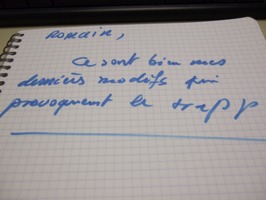 Romain,
Ce sont bien mes
derniers modifs qui
provoquent le trapp